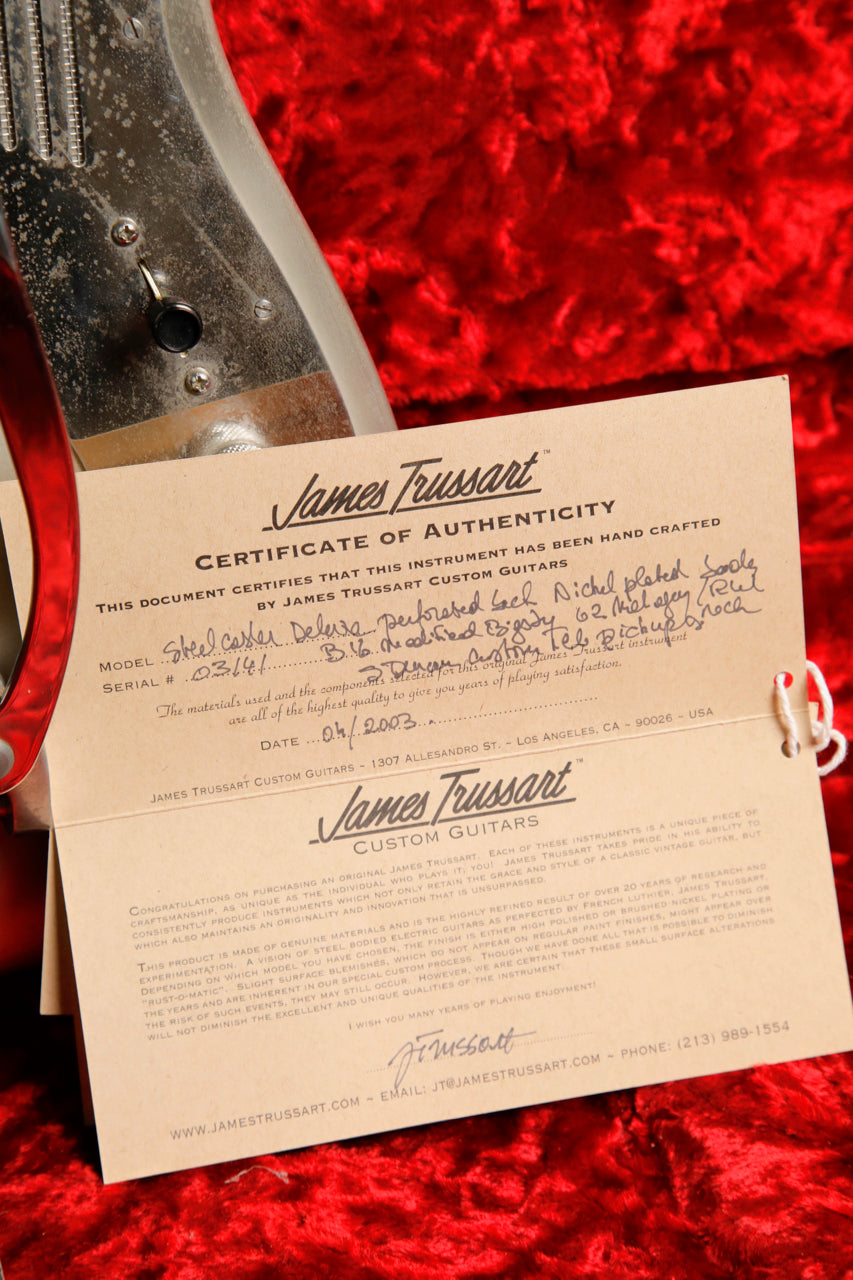 James Trussart™
CERTIFICATE OF AUTHENTICITY
THIS DOCUMENT CERTIFIES THAT THIS INSTRUMENT HAS BEEN HAND CRAFTED
BY JAMES TRUSSART CUSTOM GUITARS
MODEL Steelcaster Deluxe perforated back Nickel plated body
SERIAL # 03141 B16 Modified Bigsby 62 Mahogany /
Custom Tele Pickup neck
The materials used and the components selected for this original James Trussart instrument
are all of the highest quality to give you years of playing satisfaction.
DATE 04/2003
JAMES TRUSSART CUSTOM GUITARS ~ 1307 ALLESANDRO ST. ~ LOS ANGELES, CA ~ 90026 - USA
James Trussart™
CUSTOM GUITARS
CONGRATULATIONS ON PURCHASING AN ORIGINAL JAMES TRUSSART. EACH OF THESE INSTRUMENTS IS A UNIQUE PIECE OF
CRAFTSMANSHIP, AS UNIQUE AS THE INDIVIDUAL WHO PLAYS IT; YOU! JAMES TRUSSART TAKES PRIDE IN HIS ABILITY TO
CONSISTENTLY PRODUCE INSTRUMENTS WHICH NOT ONLY RETAIN THE GRACE AND STYLE OF A CLASSIC VINTAGE GUITAR, BUT
WHICH ALSO MAINTAINS AN ORIGINALITY AND INNOVATION THAT IS UNSURPASSED.
THIS PRODUCT IS MADE OF GENUINE MATERIALS AND IS THE HIGHLY REFINED RESULT OF OVER 20 YEARS OF RESEARCH AND
EXPERIMENTATION. A VISION OF STEEL BODIED ELECTRIC GUITARS AS PERFECTED BY FRENCH LUTHIER, JAMES TRUSSART.
DEPENDING ON WHICH MODEL YOU HAVE CHOSEN, THE FINISH IS EITHER HIGH POLISHED OR BRUSHED NICKEL PLATING OR
"RUST-O-MATIC". SLIGHT SURFACE BLEMISHES, WHICH DO NOT APPEAR ON REGULAR PAINT FINISHES, MIGHT APPEAR OVER
THE YEARS AND ARE INHERENT IN OUR SPECIAL CUSTOM PROCESS. THOUGH WE HAVE DONE ALL THAT IS POSSIBLE TO DIMINISH
THE RISK OF SUCH EVENTS, THEY MAY STILL OCCUR. HOWEVER, WE ARE CERTAIN THAT THESE SMALL SURFACE ALTERATIONS
WILL NOT DIMINISH THE EXCELLENT AND UNIQUE QUALITIES OF THE INSTRUMENT.
I WISH YOU MANY YEARS OF PLAYING ENJOYMENT!
JTrussart
WWW.JAMESTRUSSART.COM ~ EMAIL: JT@JAMESTRUSSART.COM ~ PHONE: (213) 989-1554